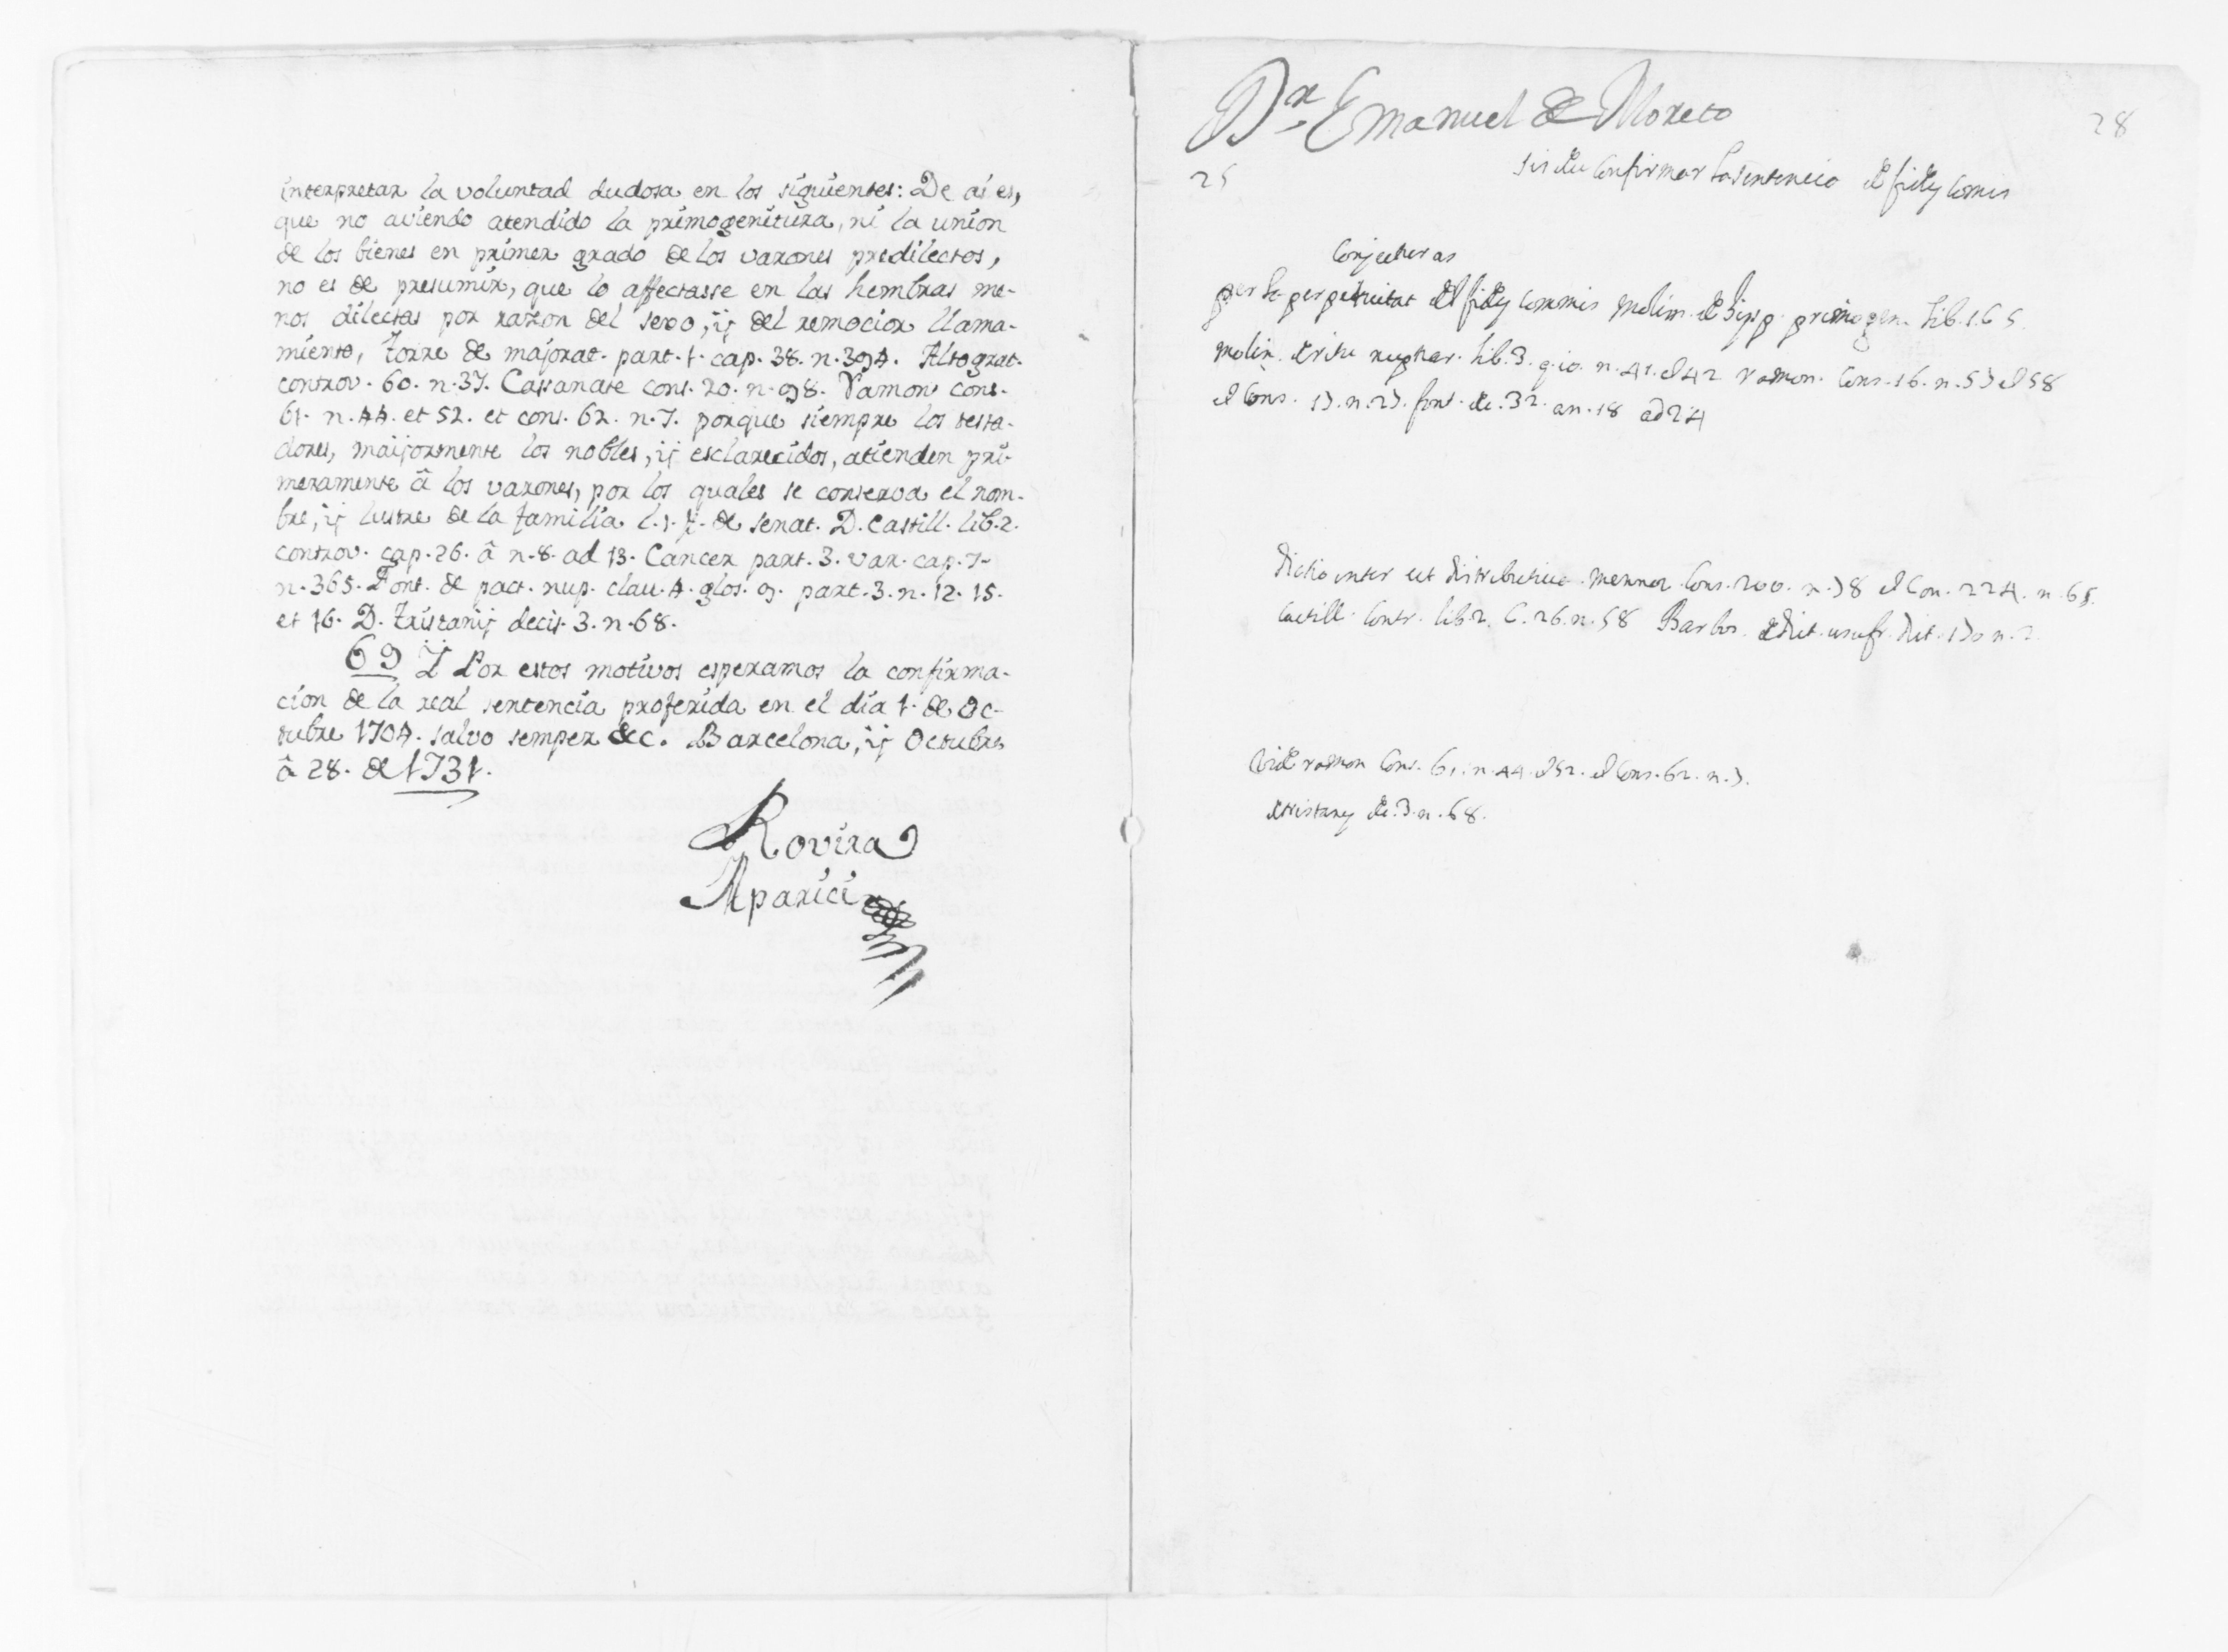 interpretar la voluntad dudosa en los siguientes: De ai es,
que no aviendo atendido la primogenitura, ni la union
de los bienes en primer grado de los varones predilectos,
no es de presumir, que lo affectasse en las hembras me-
nos dilectas por razon del sexo, ij del remocior llama-
miento, Torre de majorat. part. 1. cap. 38. n. 394. Altograt.
controv. 60. n. 37. Cassanate cons. 20. n. 98. Ramon cons.
61. n. 44. et 52. et cons. 62. n. 7. porque siempre los testa-
dores, maijormente los nobles, ij esclarecidos, atienden pri-
meramente â los varones, por los quales se conserva el nom-
bre, ij lustre de la familia l. 1. ff. de senat. D. Castill. lib. 2.
controv. cap. 26. â n. 8. ad 13. Cancer part. 3. var. cap. 7.
n. 365. Font. de pact. nup. clau. 4. glos. 9. part. 3. n. 12. 15.
et 16. D. Tristanij decis. 3. n. 68.
69 Ÿ Por estos motivos esperamos la confirma-
cion de la real sentencia proferida en el dia 1. de Oc-
tubre 1704. salvo semper &c. Barcelona, ij Octubre
â 28. de 1731.
Rovira
Aparici
Dr. Emanuel de Moreto
28
25
confirmar la sentencia del fidey comis
Conjecturas
per la perpetuitat del fidey commis Molin. de Hisp. primogen. lib. 1. C 5.
Molin. de ritu nuptiar. lib. 3. q. 10. n. 41. et 42 Ramon. Cons. 16. n. 57 et 58
et Cons. 17. n. 27. font. de. 32. an. 18 ad 24
Dictio inter est distributiva. Menoc. Cons. 200. n. 78 et Con. 224. n. 65.
Castill. Contr. lib. 2. C. 26. n. 58 Barbos. dictio n. 2
Vide Ramon Cons. 61. n. 44. et 52. et Cons. 62. n. 7.
et tristany de. 3. n. 68.